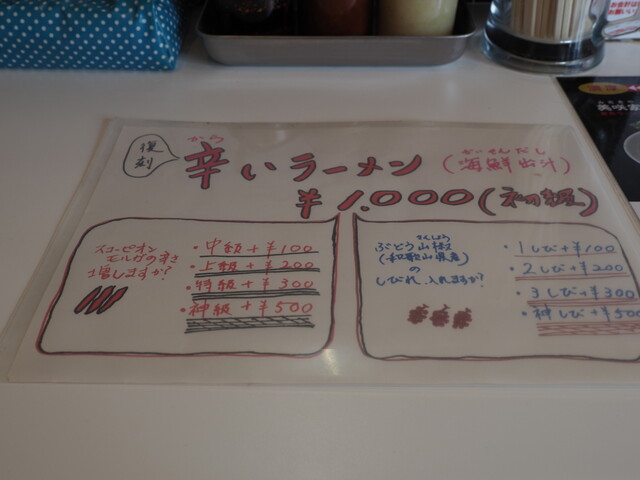 復刻
から
辛いラーメン
かいせんだし
(海鮮出汁)
¥1.000(初級)
スコーピオン
モルガの辛さ
増しますか?
・中級+¥100
・上級+¥200
・特級+¥300
・神級+¥500
さんしょう
ぶどう山椒
(和歌山県産)
の
しびれ入れますか?
・1しび+¥100
・2しび+¥200
・3しび+¥300
・神しび+¥500